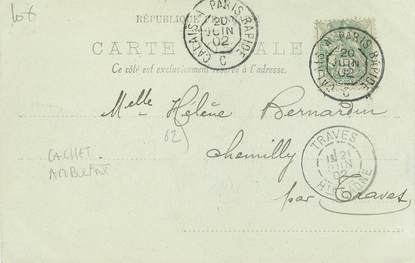 lot
RÉPUBLIQUE
CALAIS A PARIS RAPIDE
20
JUIN
02
C
CALAIS A PARIS RAPIDE
20
JUIN
02
C
CARTE POSTALE
Ce côté est exclusivement réservé à l'adresse.
Melle Hélène Bernardin
62)
Chemilly
CACHET
AMBULANT
TRAVES
21
JUIN
02
Hte SAONE
par Traves